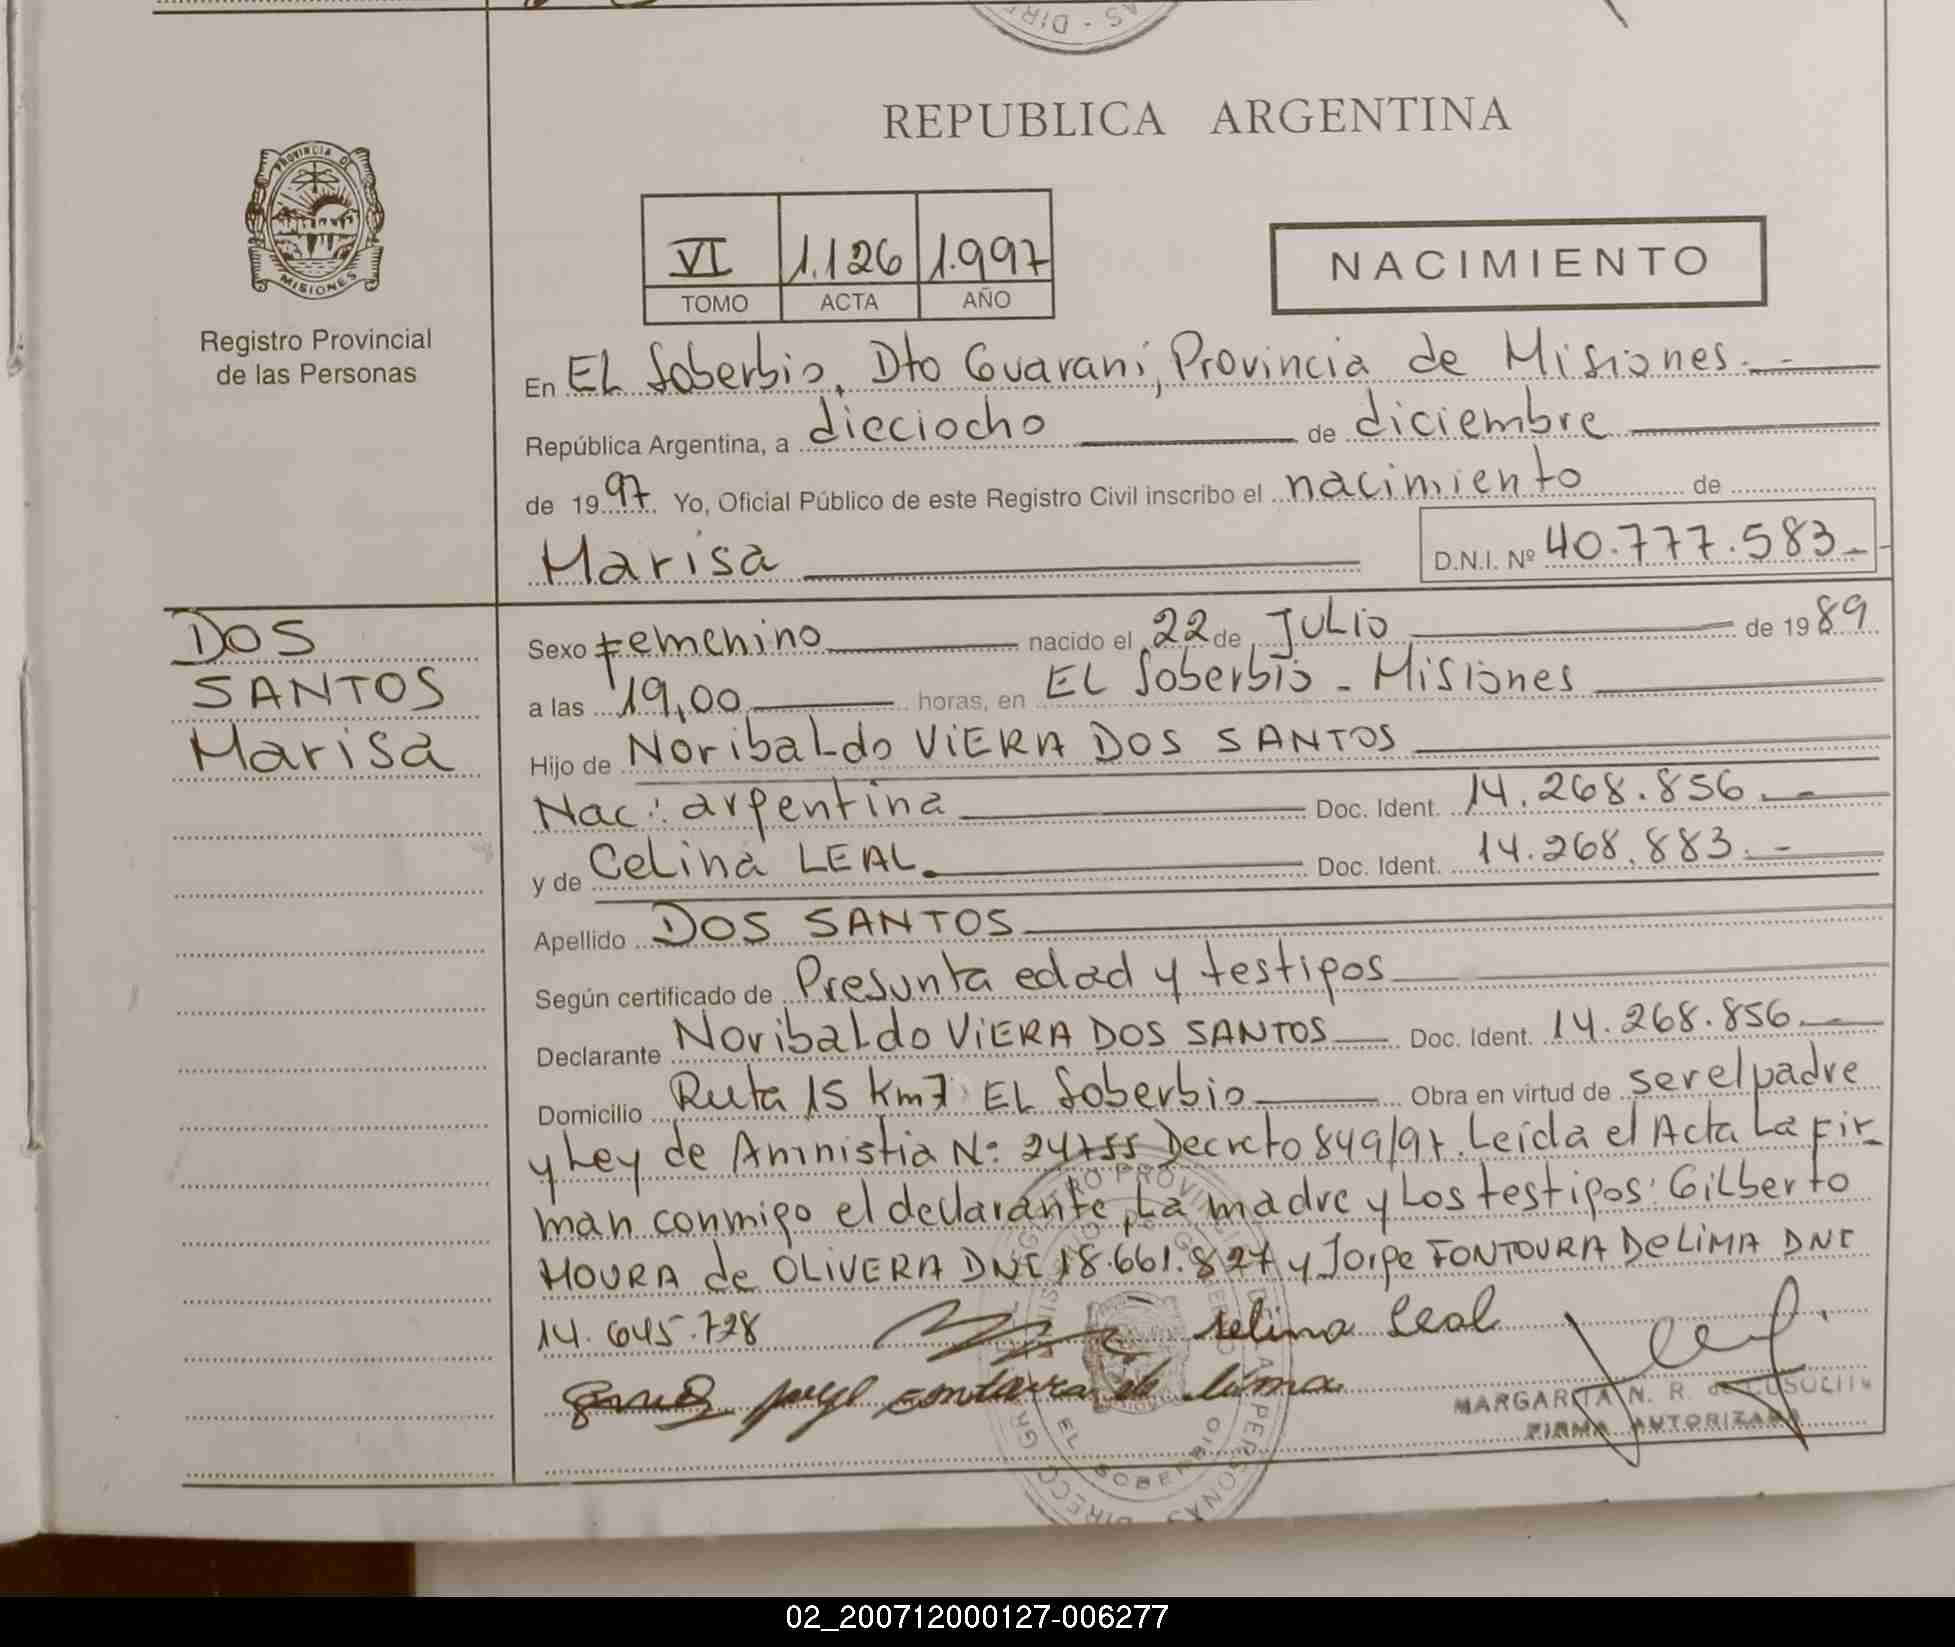 REPUBLICA ARGENTINA
PROVINCIA DE
MISIONES
Registro Provincial
de las Personas
VI 1.126 1.997
TOMO ACTA AÑO
NACIMIENTO
En EL Soberbio, Dto Guarani, Provincia de Misiones.-
República Argentina, a dieciocho de diciembre
de 1997 Yo, Oficial Público de este Registro Civil inscribo el nacimiento de
Marisa D.N.I. Nº 40.777.583-
DOS
SANTOS
Marisa
Sexo Femenino nacido el 22 de JULIO de 1989
a las 19,00 horas, en EL Soberbio - Misiones
Hijo de Noribaldo VIERA DOS SANTOS
Nac: argentina Doc. Ident. 14.268.856.-
y de Celina LEAL. Doc. Ident. 14.268.883.-
Apellido DOS SANTOS
Según certificado de Presunta edad y testigos
Declarante Noribaldo VIERA DOS SANTOS Doc. Ident. 14.268.856.-
Domicilio Ruta 15 Km7 EL Soberbio Obra en virtud de ser el padre
y Ley de Amnistia Nº 24755 Decreto 849/97. Leída el Acta La Fir-
man conmigo el declarante, La madre y Los testigos: Gilberto
MOURA de OLIVERA DNI 18.661.827 y Jorge FONTOURA De LIMA DNI
14.645.728
selina Leal
jorge fontoura de lima
MARGARITA N. R. de
FIRMA AUTORIZADA
EL SOBERBIO
02_200712000127-006277